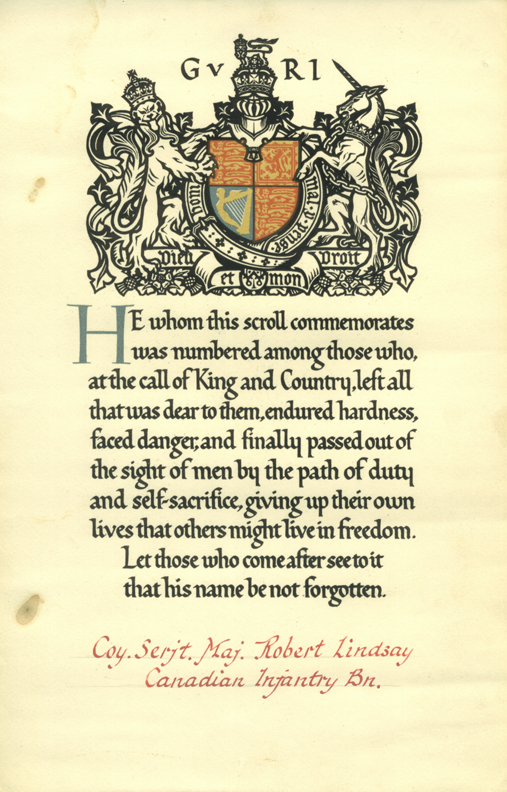 G V R I
mal. y. pense
honi
Dieu et mon Droit
HE whom this scroll commemorates
was numbered among those who,
at the call of King and Country, left all
that was dear to them, endured hardness,
faced danger, and finally passed out of
the sight of men by the path of duty
and self-sacrifice, giving up their own
lives that others might live in freedom.
Let those who come after see to it
that his name be not forgotten.
Coy. Serjt. Maj. Robert Lindsay
Canadian Infantry Bn.